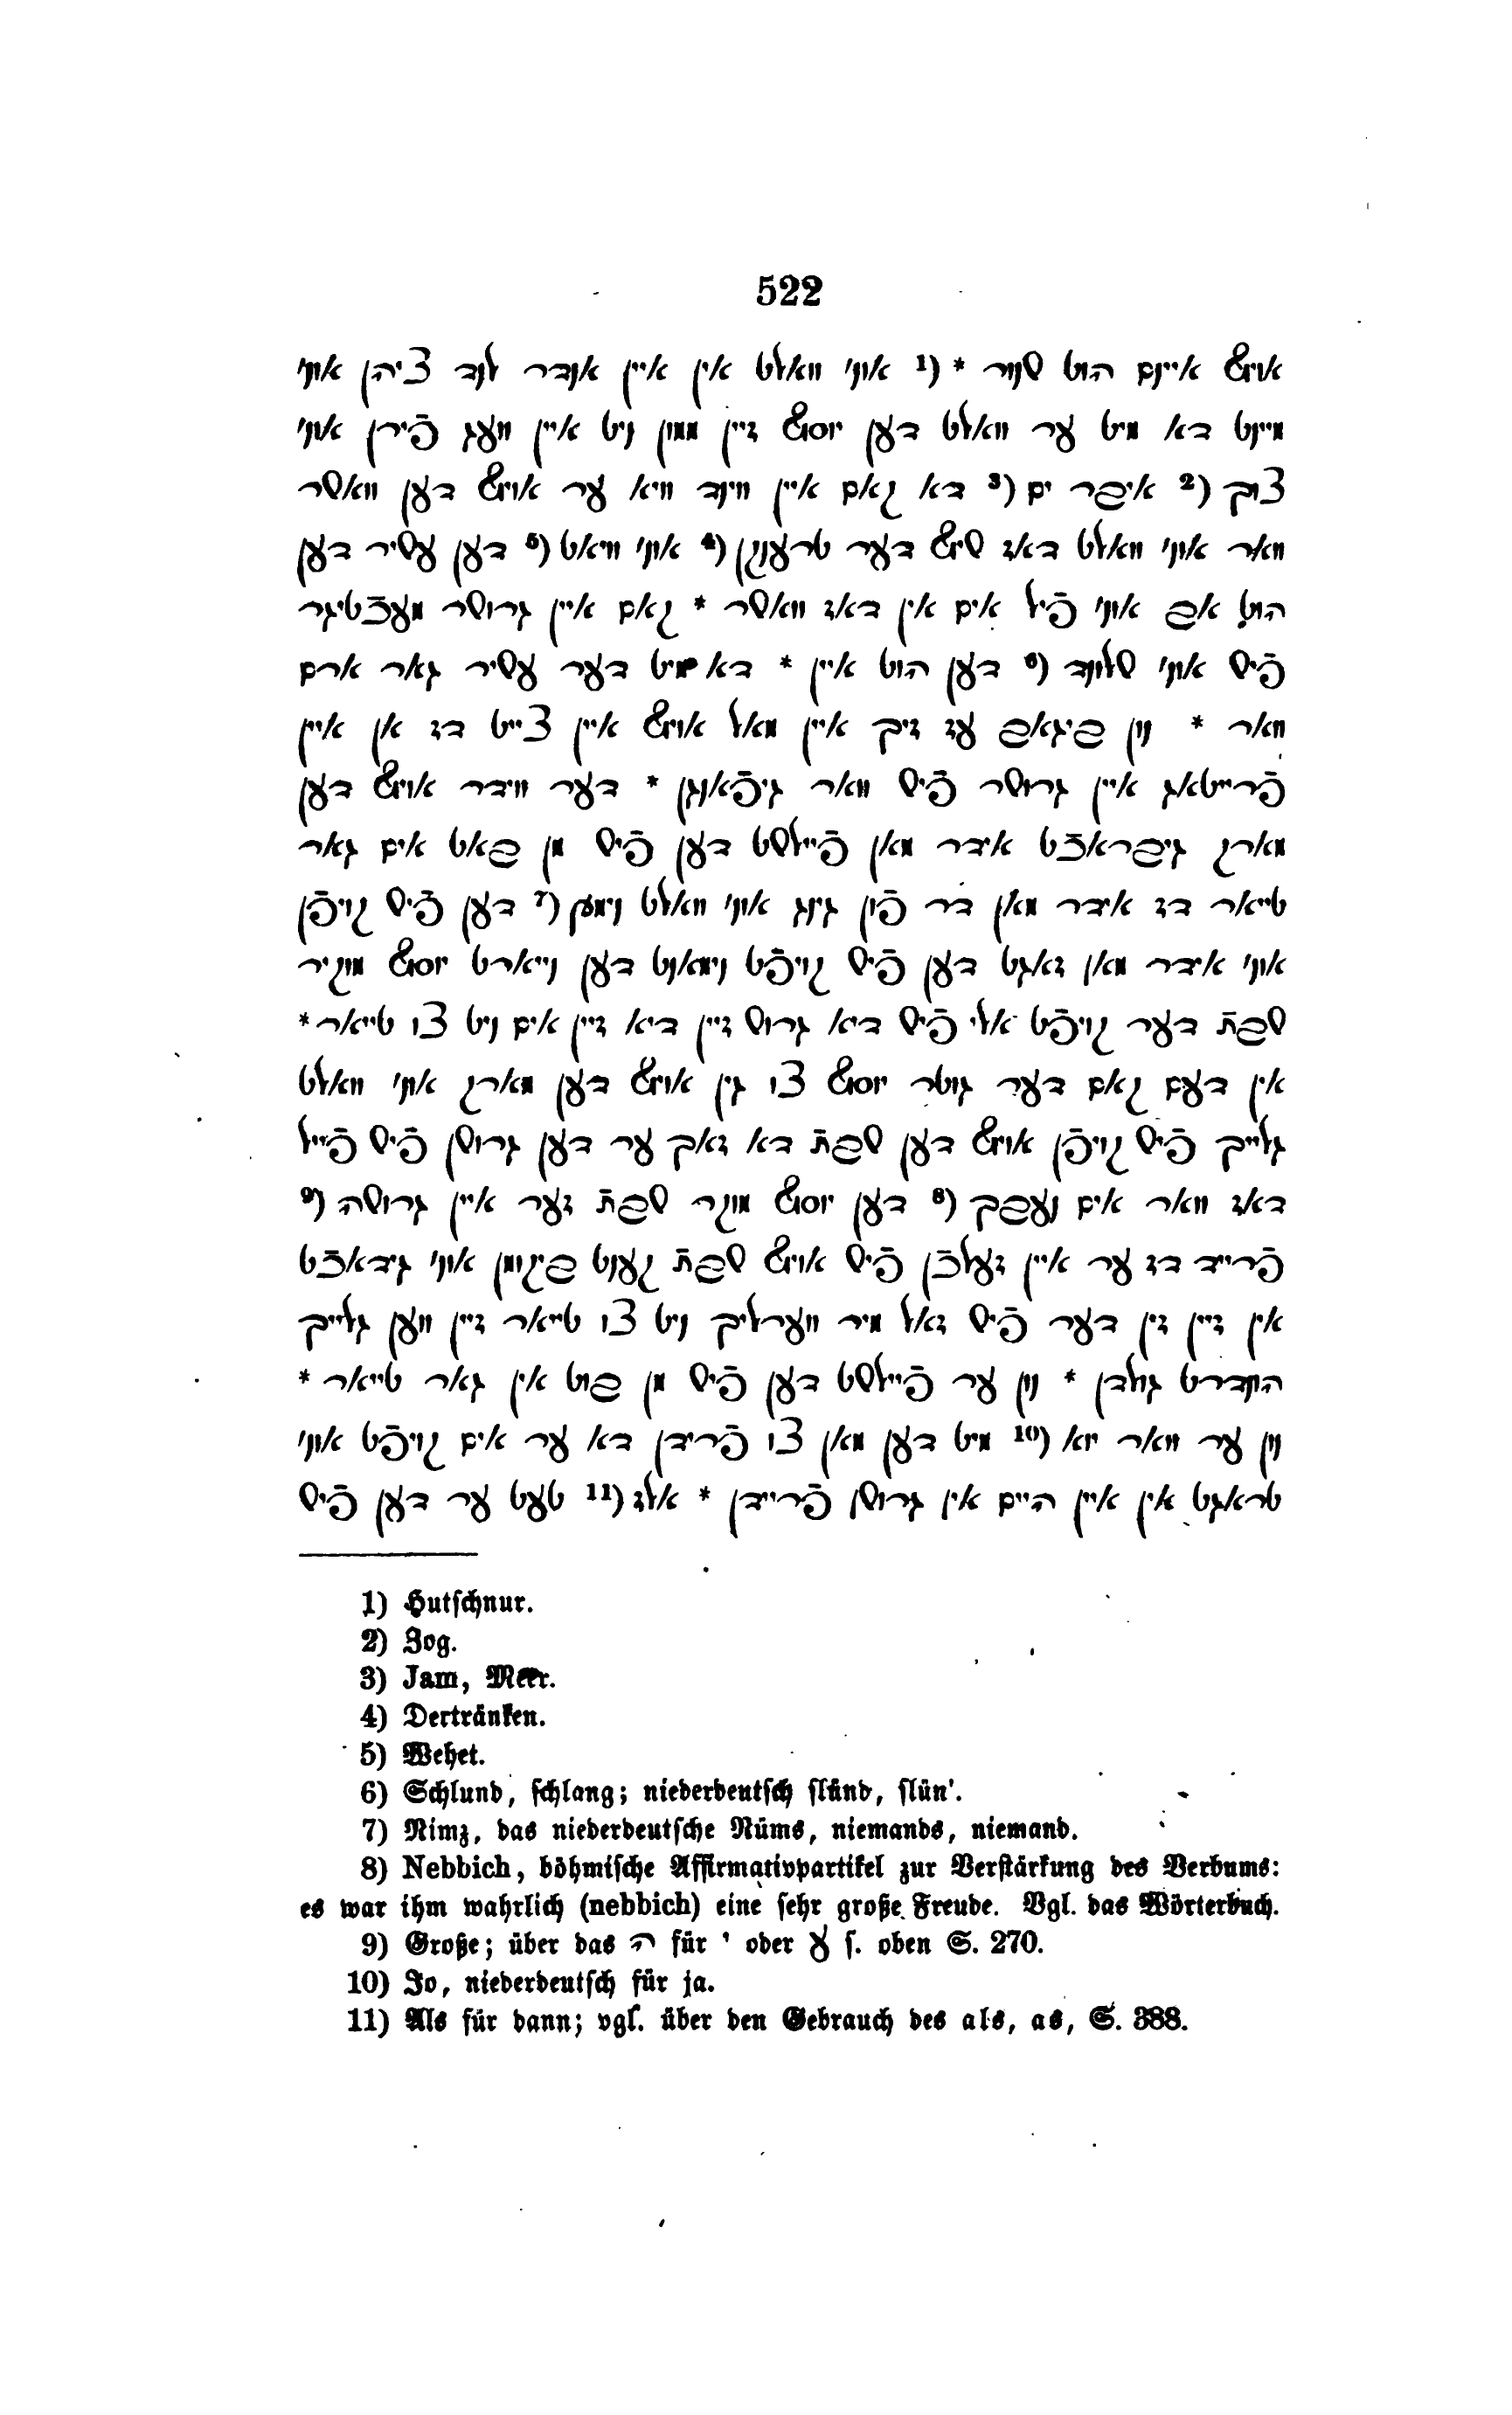 522
אויף איינם הוט שנור * (1 אוני וואלט אין איין אנדר לנד ציהן אוני
מיינט דא מיט ער וואלט דען יוסף זיין ממון ניט איין וועג פֿירן אוני
צוך (2 איבר ים (3 דא קאם איין ווינד וויא ער אויף דען וואשר
וואר אוני וואלט דאז שיף דער טרענקן (4 אוני וויאט (5 דען עשיר דען
הוט אפ אוני פֿיל אים אין דאז וואשר * קאם איין גרושר מעכֿטיגר
פֿיש אוני שלונד (6 דען הוט איין * דא מיט דער עשיר גאר ארם
וואר * נון בֿגאב עז זיך איין מאל אויף איין צייט דז אן איין
פֿרייטאג איין גרושר פֿיש וואר גיפֿאנגן * דער ווידר אויף דען
מארק גיבראכֿט אידר מאן פֿיילשט דען פֿיש מן באט אים גאר
טייאר דז אידר מאן דר פֿון גינג אוני וואלט נימץ (7 דען פֿיש קויפֿן
אוני אידר מאן זאגט דען פֿיש קויפֿט נימאנט דען נייארט יוסף מוקיר
שבת דער קויפֿט אלי פֿיש דיא גרוש זיין דיא זיין אים ניט צו טייאר *
אין דעם קאם דער גוטר יוסף צו גין אויף דען מארק אוני וואלט
גלייך פֿיש קויפֿן אויף דען שבת דא זאך ער דען גרושן פֿיש פֿייל
דאז וואר אים נעבך (8 דען יוסף מוקר שבת זער איין גרושה (9
פֿרייד דז ער איין זעלכֿן פֿיש אויף שבת קענט ביקומן אוני גידאכֿט
אין זיין זין דער פֿיש זאל מיר ווערליך ניט צו טייאר זיין ווען גלייך
הונדרט גולדן * נון ער פֿיילשט דען פֿיש מן בוט אין גאר טייאר *
נון ער וואר יוא (10 מיט דען מאן צו פֿרידן דא ער אים קויפֿט אוני
טראגט אין איין היים אין גרושן פֿריידן * אלז (11 טעט ער דען פֿיש
1) Hutſchnur.
2) Zog.
3) Jam, Meer.
4) Dertränken.
5) Wehet.
6) Schlund, ſchlang; niederdeutſch ſlünd, ſlün'.
7) Nimz, das niederdeutſche Nüms, niemands, niemand.
8) Nebbich, böhmiſche Affirmativpartikel zur Verſtärkung des Verbums:
es war ihm wahrlich (nebbich) eine ſehr große Freude. Vgl. das Wörterbuch.
9) Große; über das ה für ' oder ע ſ. oben S. 270.
10) Jo, niederdeutſch für ja.
11) Als für dann; vgl. über den Gebrauch des als, as, S. 388.